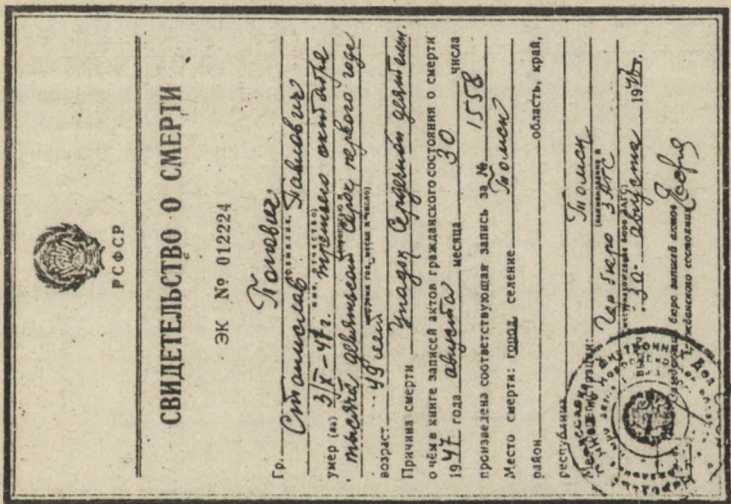 РСФСР
СВИДЕТЕЛЬСТВО О СМЕРТИ
ЭК № 012224
Гр. Попович
Станислав Павлович
умер (ла) 3/X-41 г. третьего октября
тысяча девятьсот сорок первого года
возраст 49 лет
Причина смерти Упадок сердечной деятельн.
о чем в книге записей актов гражданского состояния о смерти
1947 года августа месяца 30 числа
произведена соответствующая запись за № 1558
Место смерти: город, селение Томск
район область, край,
республика
Томск
Гор бюро ЗАГС
30 августа 1947 г.
бюро записей актов
гражданского состояния